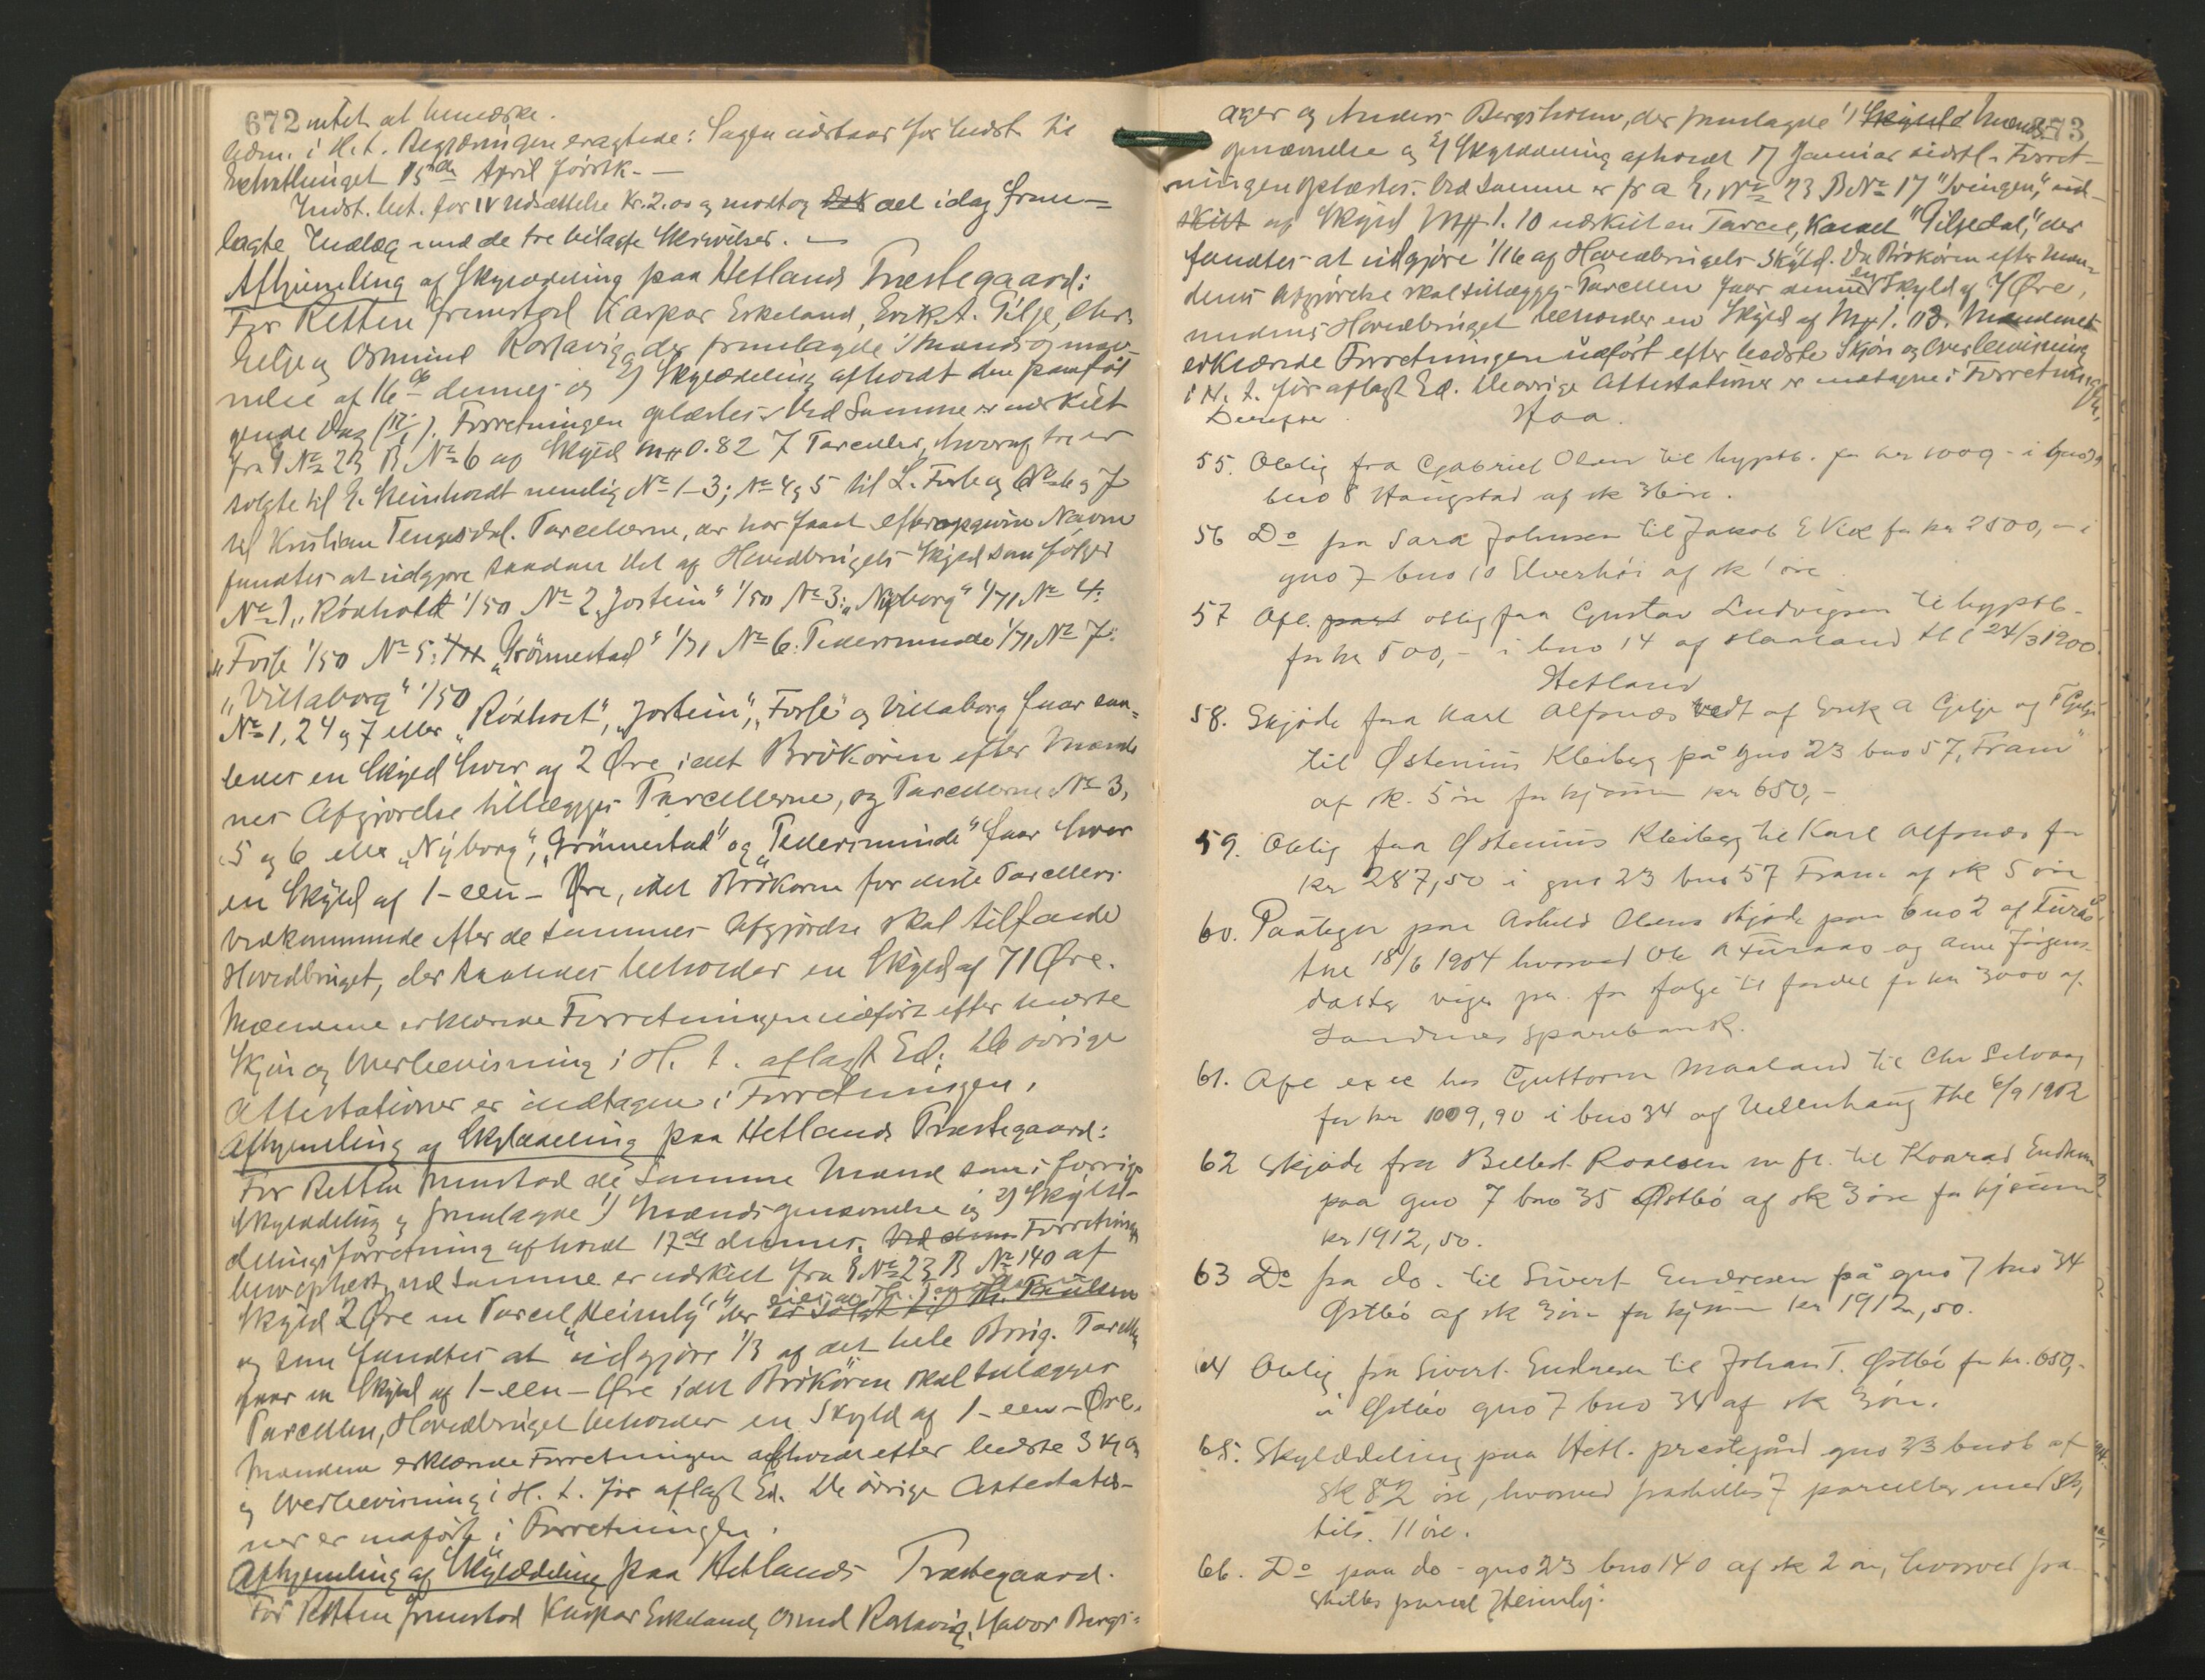 672 intet at bemærke.
i H. t. Begjæringen eragtede: Sagen udstaar for Indst. til
Extrathinget 15de April førstk. —
Indst. bet. for IV Udsættelse Kr. 2.00 og modtog det idag frem-
lagte Indlæg med de tre bilagte Skrivelser. —
Afhjemling af Skylddeling paa Hetlands Præstegaard:
For Retten fremstod Kaspar Eskeland, Erik A. Gilje, Chr.
Gilje og Osmund Roslavig, der fremlagde 1) Mandsopnæv-
nelse af 16de dennes og 2) Skylddeling afholdt den paaføl-
gende Dag (17/1). Forretningen oplæstes. Ved Samme er udskilt
fra G No 23 B No 6 af Skyld M# 0.82 7 Parceller, hvoraf tre er
solgte til E. Steinhardt nemlig No 1-3; No 4 og 5 til L. Forse og No 6 og 7
til Kristian Tengesdal. Parcellerne, der har faaet efteropgivne Navne
fandtes at udgjøre saadan Del af Hovedbrugets Skyld som følger
No 1 „Rödholt" 1/50 No 2 „Jostein" 1/50 No 3: „Nyborg" 1/71 No 4:
„Forse 1/50 No 5: „Grönnestad" 1/71 No 6: Pedersminde 1/71 No 7:
„Villaborg" 1/50
No 1, 2 4 og 7 eller „Rödholt", „Jostein", „Forse" og Villaborg faar saa-
ledes en Skyld hver af 2 Øre idet Brökören efter Mænde
nes Afgjørelse tillægges Parcellerne, og Parcellerne No 3,
5 og 6 eller „Nyborg", „Grönnestad" og „Pedersminde" faar hver
en Skyld af 1-een- Øre, idet Brökören for disse Parcellers
vedkommende efter de sammes Afgjørelse skal tilfalde
Hovedbruget, der saaledes beholder en Skyld af 71 Øre.
Mændene erklærede Forretningen udført efter bedste
Skjøn og Overbevisning i H. t. aflagt Ed. De øvrige
Attestationer er indtagne i Forretningen.
Afhjemling af Skylddeling paa Hetlands Præstegaard:
For Retten fremstod de samme Mænd som i forrige
Skylddeling og fremlagde 1) Mandsopnævnelse og 2) Skyld-
delingsforretning afholdt 17de dennes. Ved denne Forretning
blev oplæst, ved Samme er udskilt fra G No 23 B No 140 af
Skyld 2 Øre en Parcel „Heimly", der er solgt til
og som fandtes at udgjøre 1/3 af det hele Brug. Parcellen
faar en Skyld af 1-een- Øre idet Brökören skal tillægges
Parcellen, Hovedbruget beholder en Skyld af 1-een- Øre.
Mændene erklærede Forretningen afholdt efter bedste Skjøn
og Overbevisning i H. t. før aflagt Ed. De øvrige Attestatio-
ner er indførte i Forretningen.
Afhjemling af Skylddeling paa Hetlands Præstegaard.
For Retten fremstod Kaspar Eskeland, Osmund Roslavig, Havor Bergs-
673
ager og Anders Bergsholm, der fremlagde 1) Skyld Mands
opnævnelse og 2) Skylddeling afholdt 17 Januar sidstl. Forret-
ningen oplæstes. Ved Samme er fra G. No 23 B No 17 "Svingen", ud-
skilt af Skyld M# 1.10 udskilt en Parcel, kaldet "Giljedal", der
fandtes at udgjøre 1/16 af Hovedbrugets Skyld. Da Brökören efter Mæn-
denes Afgjørelse skal tillægges Parcellen faar denne en Skyld af 7 Øre,
medens Hovedbruget beholder en Skyld af M# 1.03. Mændene
erklærede Forretningen udført efter bedste Skjøn og Overbevisning
i H. t. før aflagt Ed. De øvrige Attestationer er indtagne i Forretningen.
Derefter
Haa.
55. Oblig fra Gabriel Olsen til hyptb. for kr 1000 - i
bno 8 Haugstad af sk 36 øre.
56 Do fra Sara Johnsen til Jakob E Vik for kr 2500,- i
gno 7 bno 10 Elverhøi af sk 1 øre
57 Afl. oblig fra Gustav Ludvigsen til hyptb.
for kr 500,- i bno 14 af Haaland thl 24/3 1900.
Hetland
58. Skjøde fra Karl Alfsnes vedt af Erik A Gilje og T Gilje
til Østenius Kleiberg på gno 23 bno 57, „Fram"
af sk. 5 øre for kjøsum kr 650,-
59. Oblig fra Østenius Kleiberg til Karl Alfsnes for
kr 287,50 i gno 23 bno 57 Fram af sk 5 øre
60. Paategn paa Olsens skjøde paa bno 2 af
thl 18/6 1904 hvorved Ole og Arne Jørgens-
viger pr. for følge til fordel for kr 3000 af
Sandnes Sparebank.
61. Afl hos Guttorm Maaland til Chr Selvaag
for kr 1009,90 i bno 34 af Vellenhaug thl 6/9 1902
62 Skjøde fra Roalsen m fl. til Konrad
paa gno 7 bno 35 Østbø af sk 3 øre for kjøsum
kr 1912,50.
63 Do fra do. til Sivert Endresen på gno 7 bno 34
Østbø af sk 3 øre for kjøsum kr 1912,50.
64 Oblig fra Sivert Endresen til Johan T. Østbø for kr. 650,-
i Østbø gno 7 bno 34 af sk 3 øre.
65. Skylddeling paa Hetl. prestegård gno 23 bno 6 af
sk 82 øre, hvorved fraskilles 7 parceller med sk,
tils. 11 øre.
66. Do paa do - gno 23 bno 140 af sk 2 øre, hvorved fra-
skilles parcel Heimly.